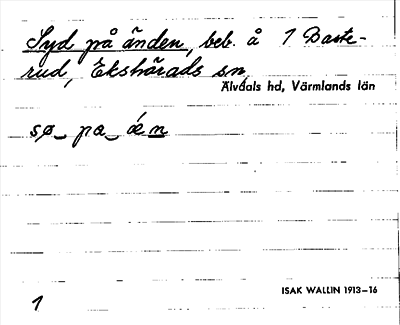 Syd på änden, beb. å 1 Baste-
rud, Ekshärads sn,
Älvdals hd, Värmlands län
sø_ pa_ ǽn
ISAK WALLIN 1913–16
1